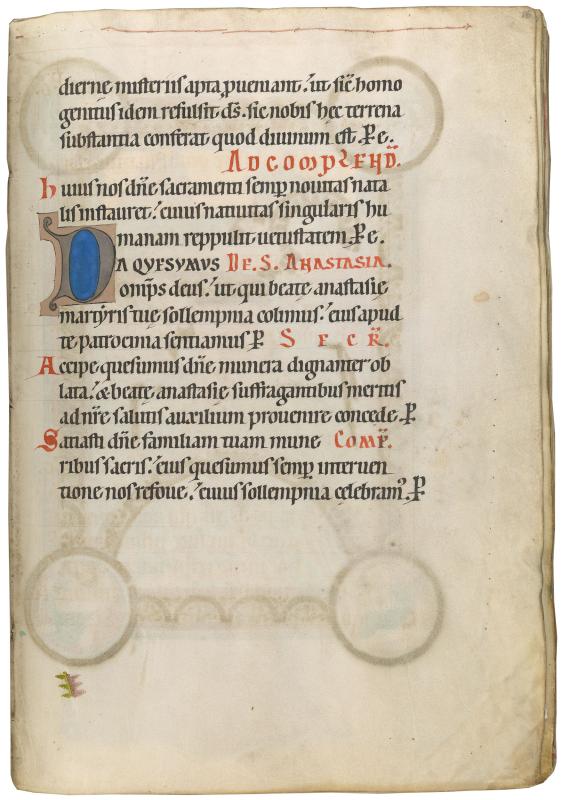 dierne misteriis apta ꝓueniant. ut sic̄ homo
genitus idem refulsit d̄s. sic nobis hec terrena
substantia conferat quod diuinum est. P̄ e.
AD COMPLEHD̄.
huius nos dn̄e sacramenti semp̄ nouitas nata
lis instauret. cuius natiuitas singularis hu
manam reppulit uetustatem. P̄ e.
DA QUESUMUS DE. S. ANASTASIA.
omp̄s deus. ut qui beate anastasie
martyris tue sollempnia colimus. eius apud
te patrocinia sentiamus. P̄ S E C R̄.
Accipe quesumus dn̄e munera dignanter ob
lata. & beate anastasie suffragantibus meritis
ad nr̄e salutis auxilium prouenire concede. P̄
Satiasti dn̄e familiam tuam mune COMP̄.
ribus sacris. eius quesumus semp̄ interuen
tione nos refoue. cuius sollempnia celebram᾽. P̄